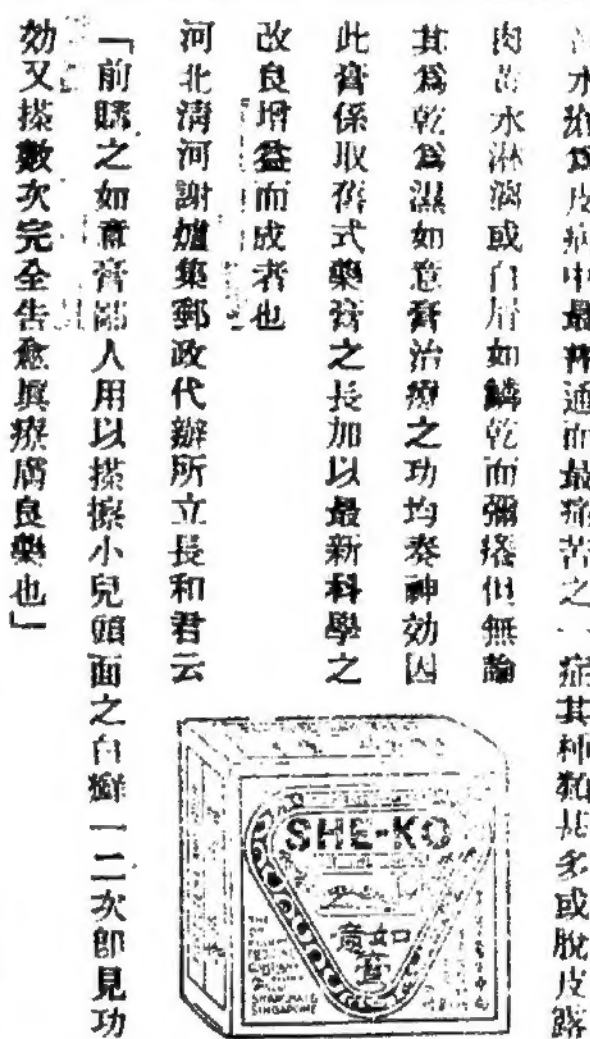 水瘡爲皮病中最普通而最痛苦之一症其種類甚多或脫皮露
肉苦水淋漓或白屑如鱗乾而彌癢但無論
其爲乾爲濕如意膏治療之功均奏神効因
此膏係取舊式藥膏之長加以最新科學之
改良增益而成者也
河北淸河謝爐集郵政代辦所立長和君云
「前購之如意膏鄙人用以搽擦小兒頭面之白癬一二次卽見功
効又搽數次完全告愈眞療膚良藥也」
SHE-KO
如意
膏
THE
SHANGHAI &
SINGAPORE